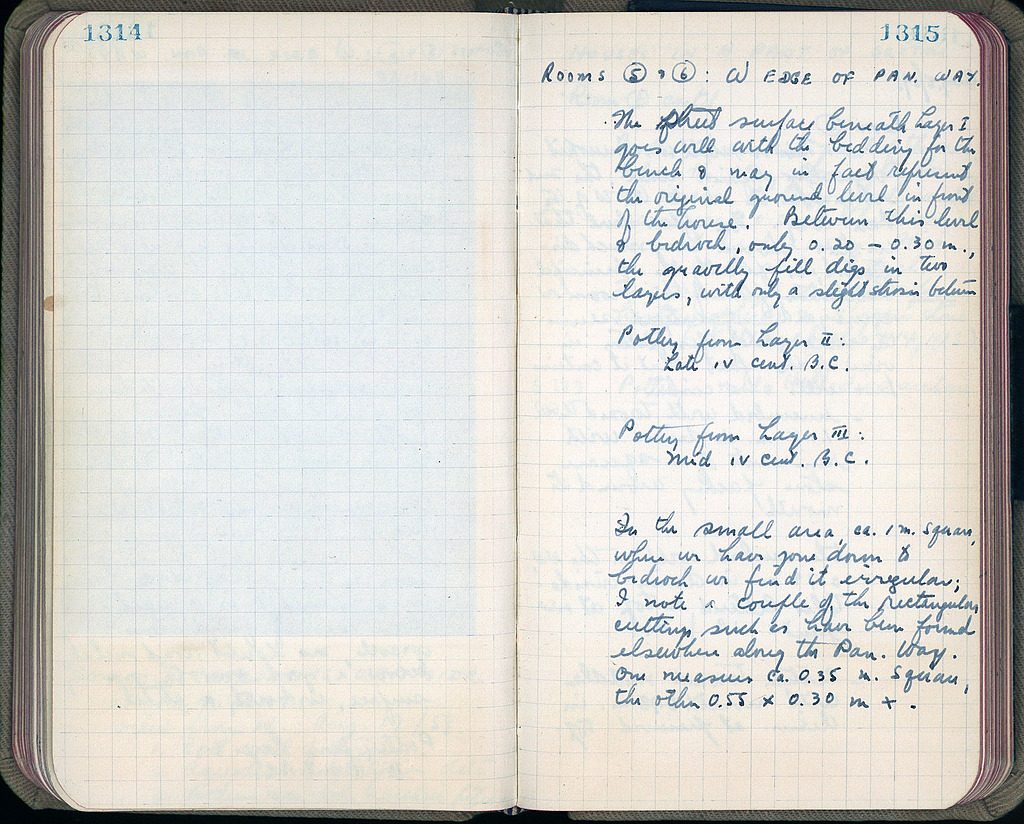 1314
1315
ROOMS 5 & 6: W EDGE OF PAN. WAY.
The street surface beneath Layer I
goes well with the bedding for the
bench & may in fact represent
the original ground level in front
of the house. Between this level
& bedrock, only 0.20 – 0.30 m.,
the gravelly fill digs in two
layers, with only a slight strosis between
Pottery from Layer II:
Late IV cent. B.C.
Pottery from Layer III:
Mid IV cent. B.C.
In the small area, ca. 1 m. square,
where we have gone down to
bedrock we find it irregular;
I note a couple of the rectangular
cuttings such as have been found
elsewhere along the Pan. Way.
One measures ca. 0.35 m. square,
the other 0.55 x 0.30 m +.